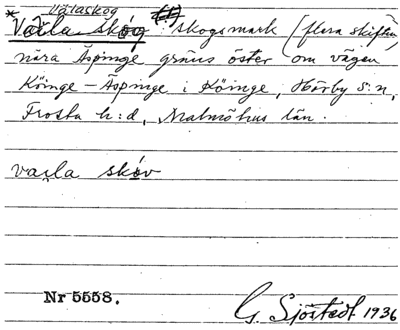 Välaskog
*Vaila skóg : skogsmark (flera skiften)
nära Äspinge gräns öster om vägen
Köinge – Äspinge i Köinge, Hörby s:n,
Frosta h:d, Malmöhus län.
vaila skóv
Nr 5558.
G. Sjöstedt 1936